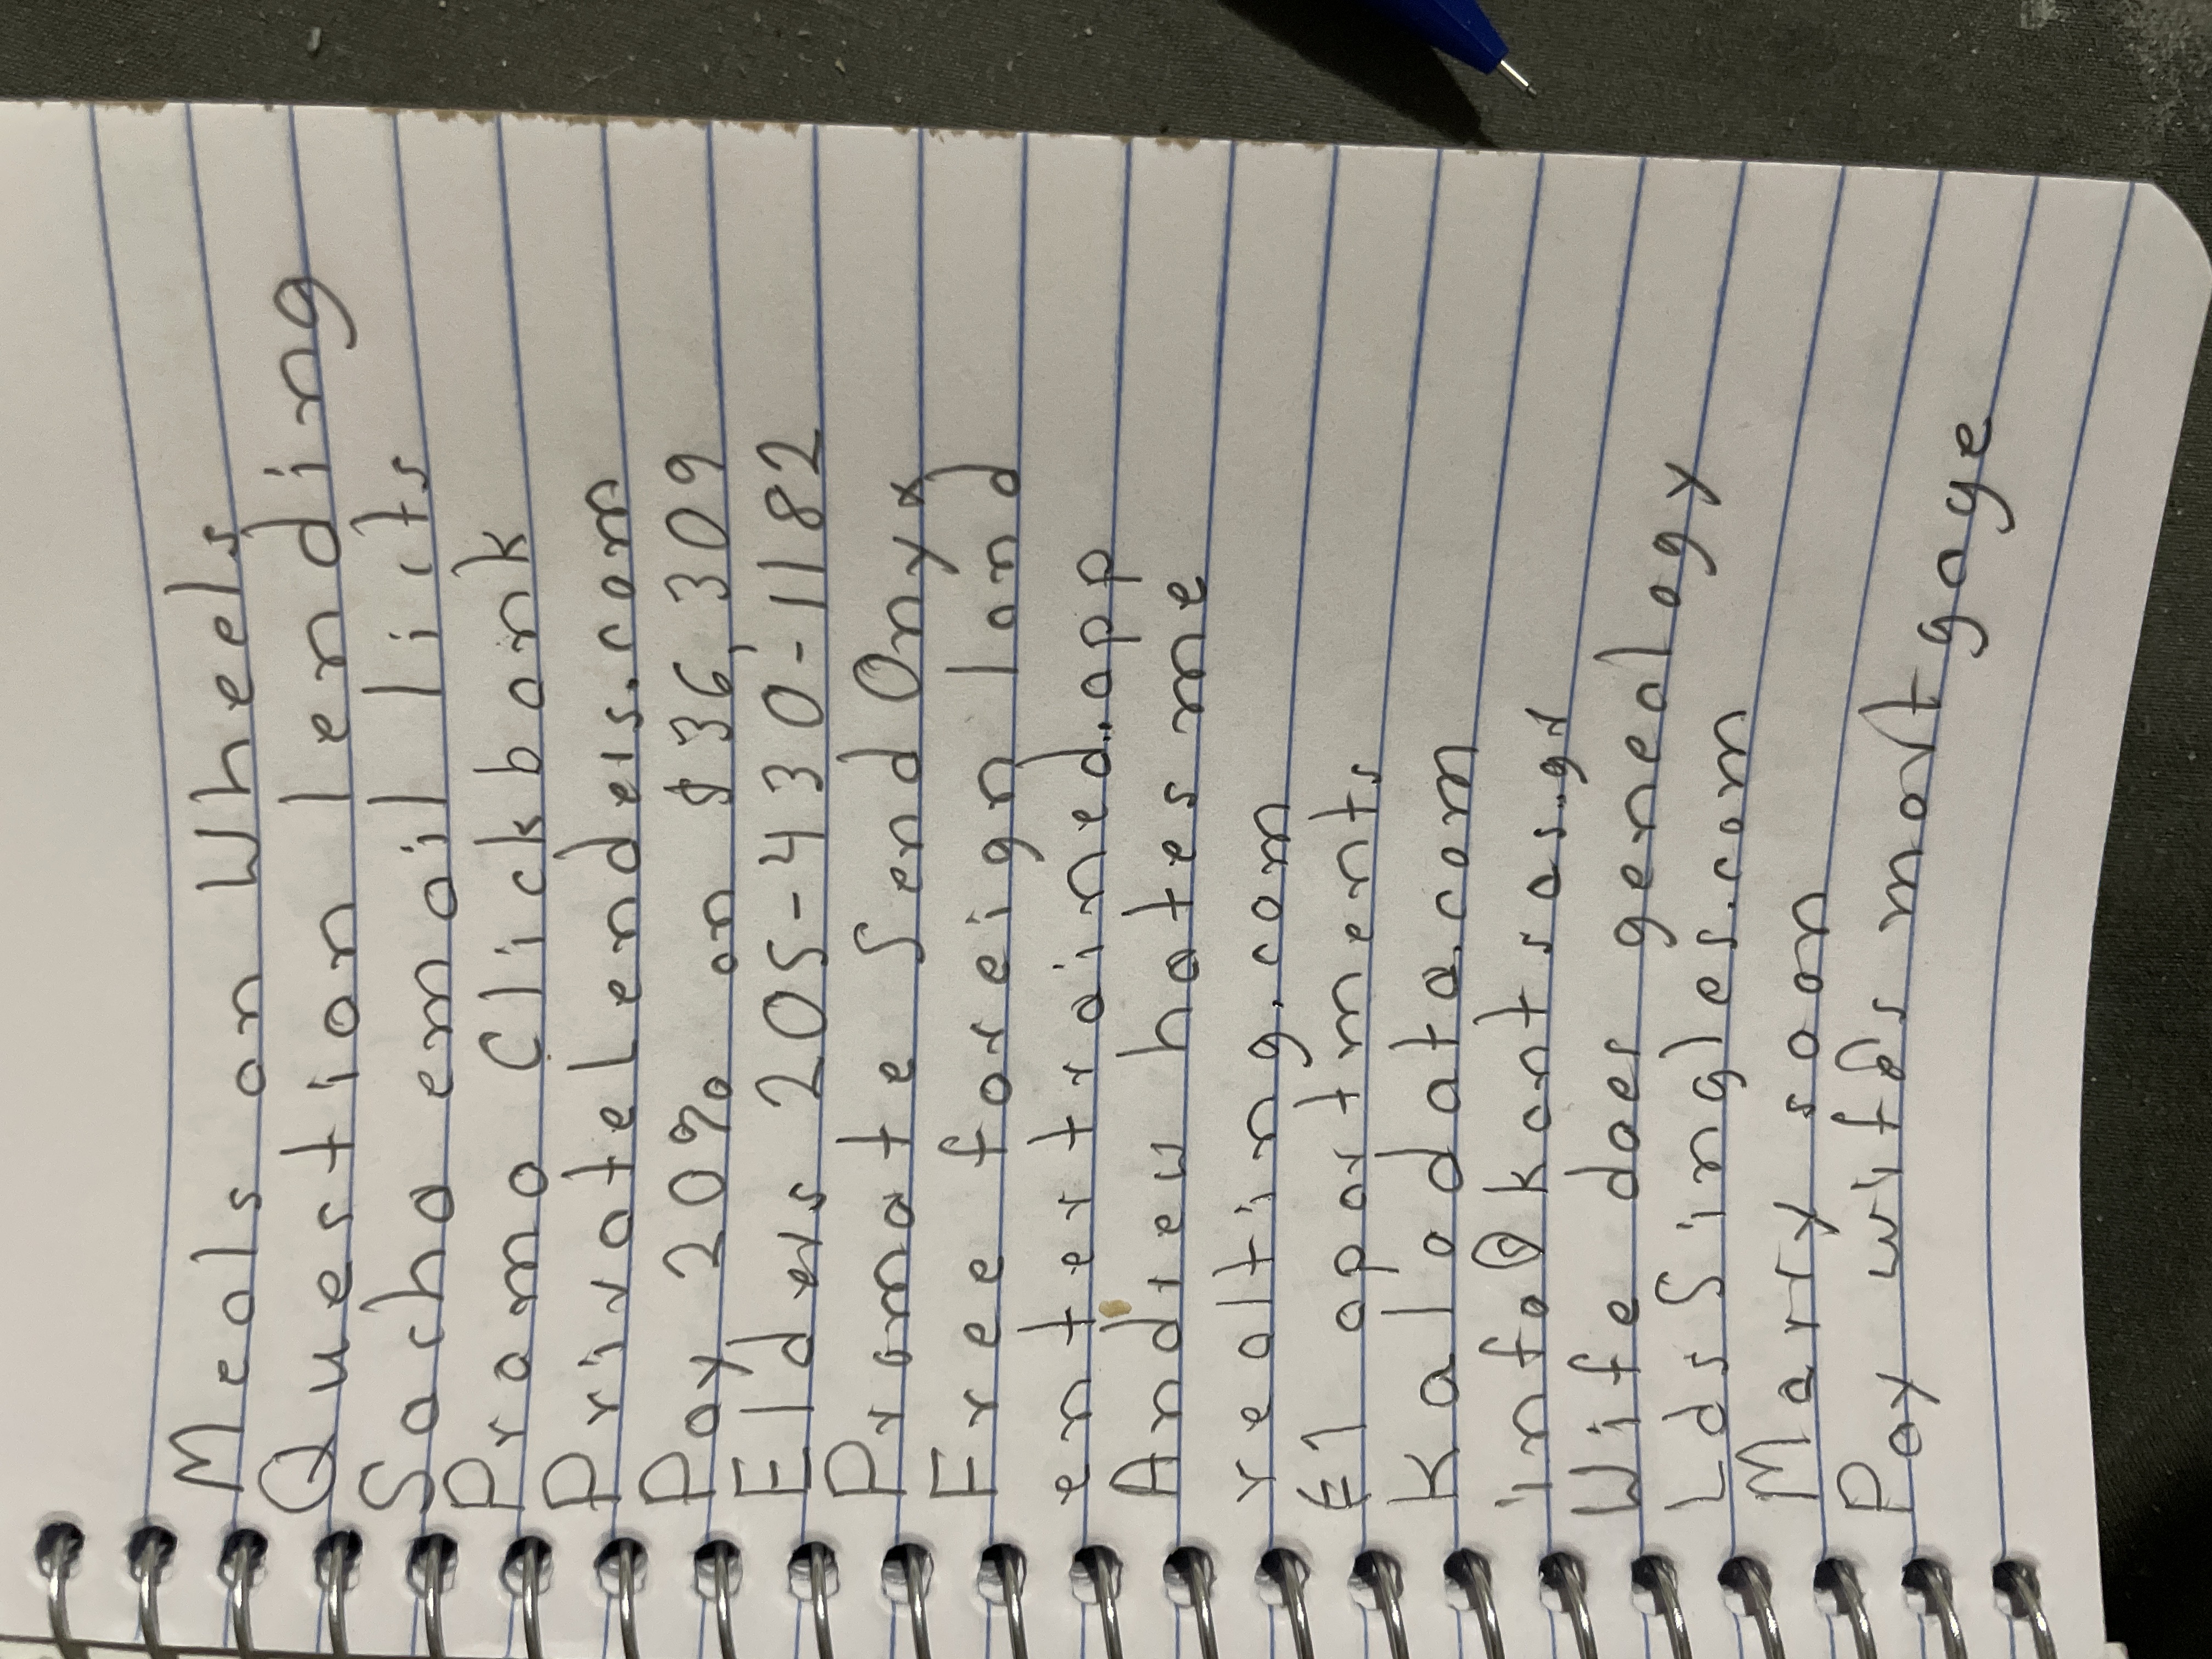 Meals on Wheels
Question lending
Sacha email licts
Promo Clickbank
PrivateLenders.com
Pay 20% on $36,309
Elders 205-430-1182
Promote SendOnyx
Free foreign land
entertrained.app
Andrew hates me
realting.com
El apartments
Kalodata.com
info@kantsas.gr
Wife does genealogy
LdsSingles.com
Marry soon
Pay wifes mortgage